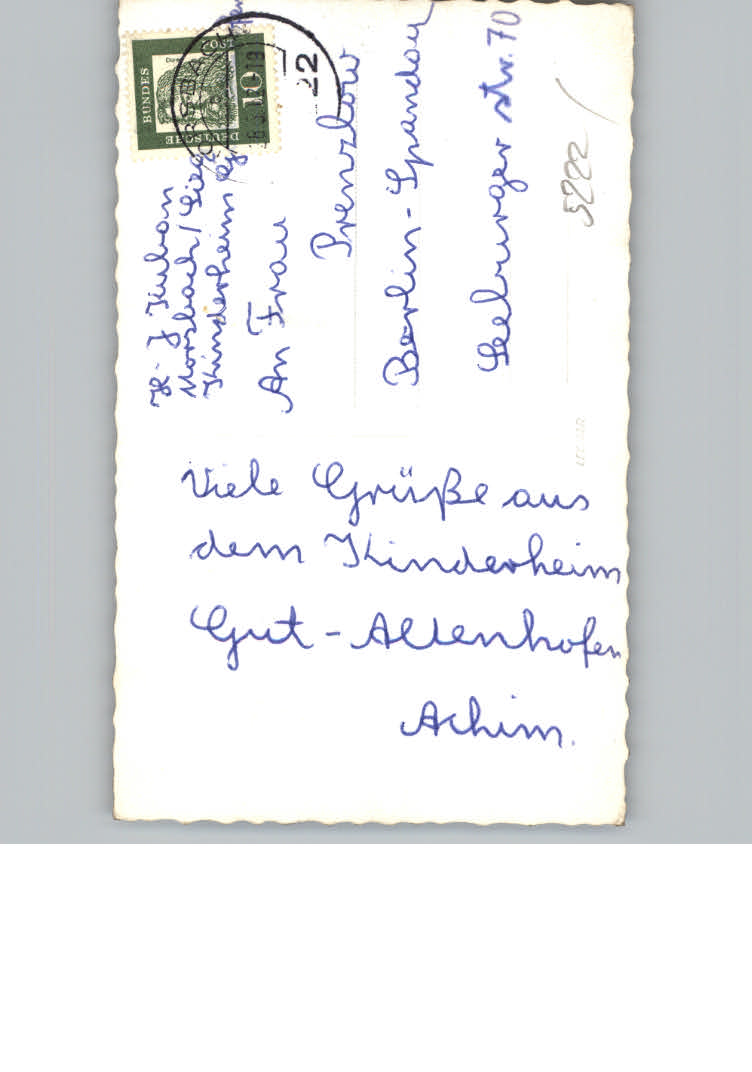 Viele Grüße aus
dem Kinderheim
Gut-Altenhofen
Achim.
H-J Kuban
Morsbach/Sieg
Kinderheim
An Frau
Prenzlow
Berlin-Spandau
Seeburger str. 70
DEUTSCHE
BUNDES
10
22
5222